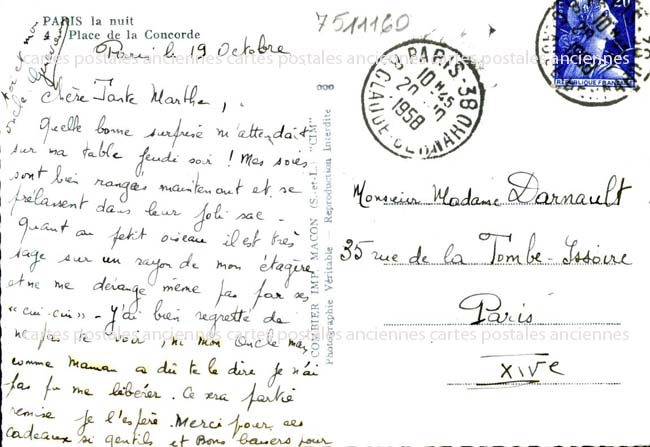 PARIS la nuit
Place de la Concorde
7511160
Paris le 19 Octobre
Chère Tante Marthe,
Quelle bonne surprise m'attendait
sur ma table jeudi soir ! Mes soies
sont bien rangées maintenant et se
prélassent dans leur joli sac -
Quant au petit oiseau il est très
sage sur un rayon de mon étagère
et ne me dérange même pas par ses
"cui-cui" - J'ai bien regretté de
ne pas te voir, ni mon oncle mais
comme Maman a dû te le dire je n'ai
pas pu me libérer. Ce sera partie
remise je l'espère. Merci pour ces
cadeaux si gentils et Bons baisers pour
toi et mon
oncle
COMBIER IMP. MACON (S.-et-L.) "CIM"
Photographie Véritable - Reproduction Interdite
PARIS-38
10 H 45
20-10
1958
CLAUDE-BERNARD
20
REPUBLIQUE FRANÇAISE
Monsieur Madame Darnault
35 rue de la Tombe-Issoire
Paris
XIVe
cartes postales anciennes cartes postales anciennes cartes postales anciennes
cartes postales anciennes cartes postales anciennes cartes postales anciennes